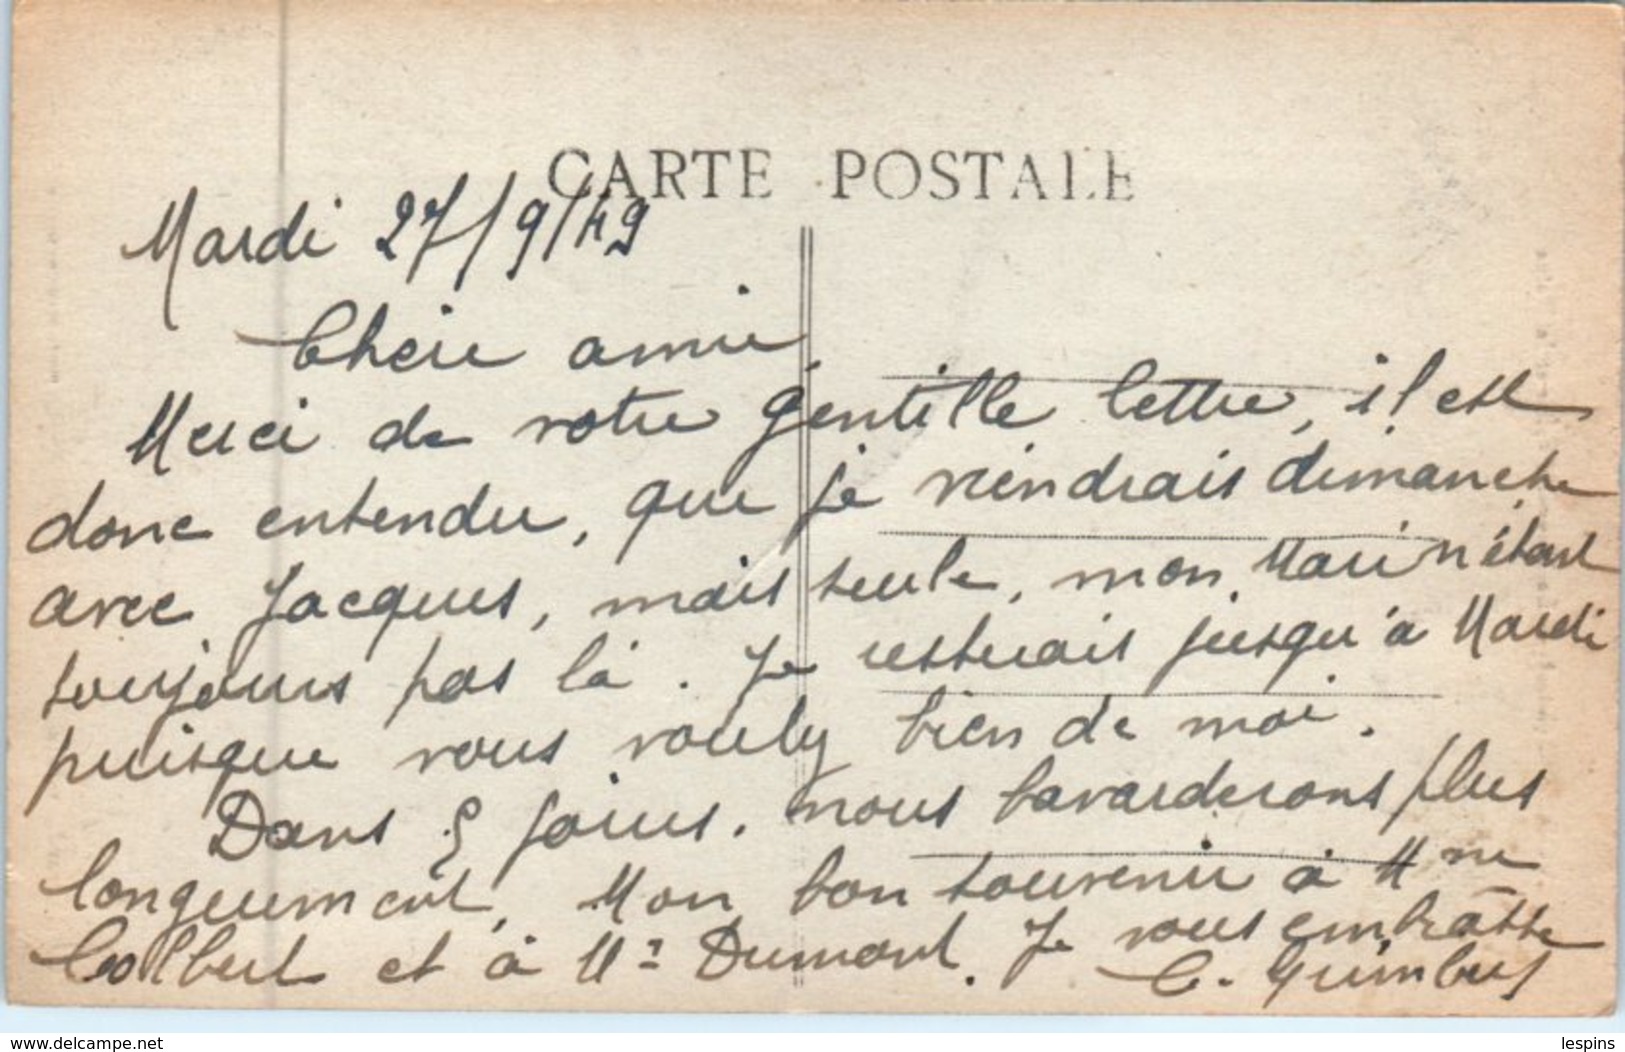 CARTE POSTALE
Mardi 27/9/49
Chère amie,
Merci de votre gentille lettre, il est
donc entendu, que je viendrais dimanche
avec Jacques, mais seule, mon Mari n'étant
toujours pas là. Je resterais jusqu'à Mardi
puisque vous voulez bien de moi.
Dans 5 jours, nous bavarderons plus
longuement, Mon bon souvenir à Mme
Colbert et à Mr Dumont. Je vous embrasse
C.
www.delcampe.net
lespins